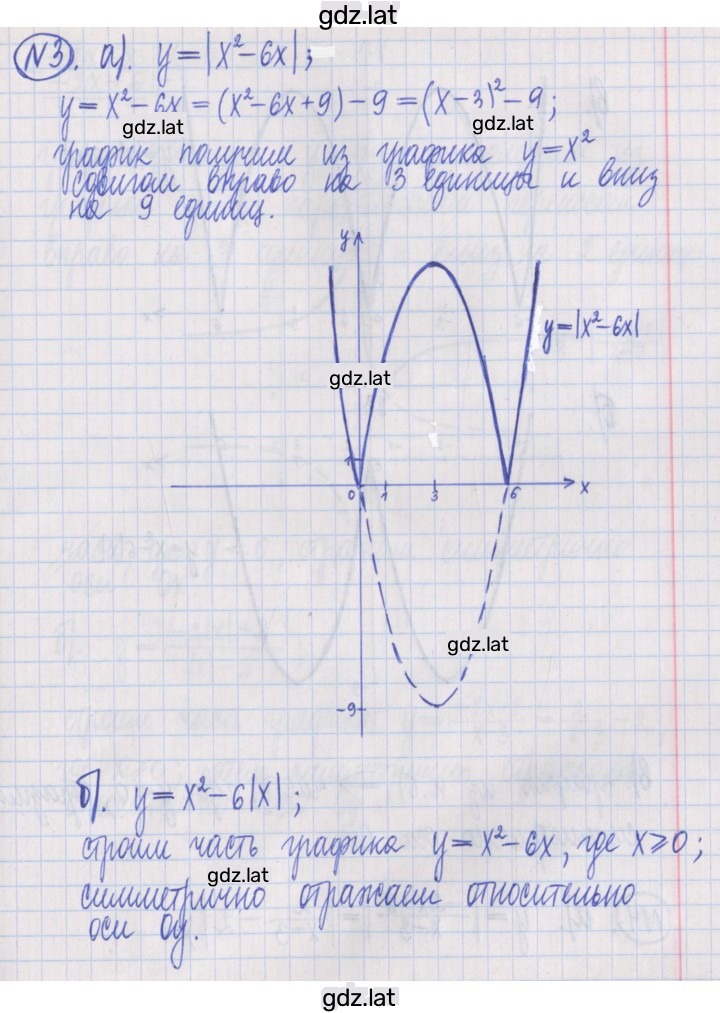 gdz.lat
№3. а). y = |x² - 6x|;
y = x² - 6x = (x² - 6x + 9) - 9 = (x - 3)² - 9;
gdz.lat
gdz.lat
график получим из графика y = x²
сдвигом вправо на 3 единицы и вниз
на 9 единиц.
y
y = |x² - 6x|
gdz.lat
1
0 1 3 6 x
gdz.lat
-9
б). y = x² - 6|x|;
строим часть графика y = x² - 6x, где x ⩾ 0;
gdz.lat
симметрично отражаем относительно
оси Oy.
gdz.lat